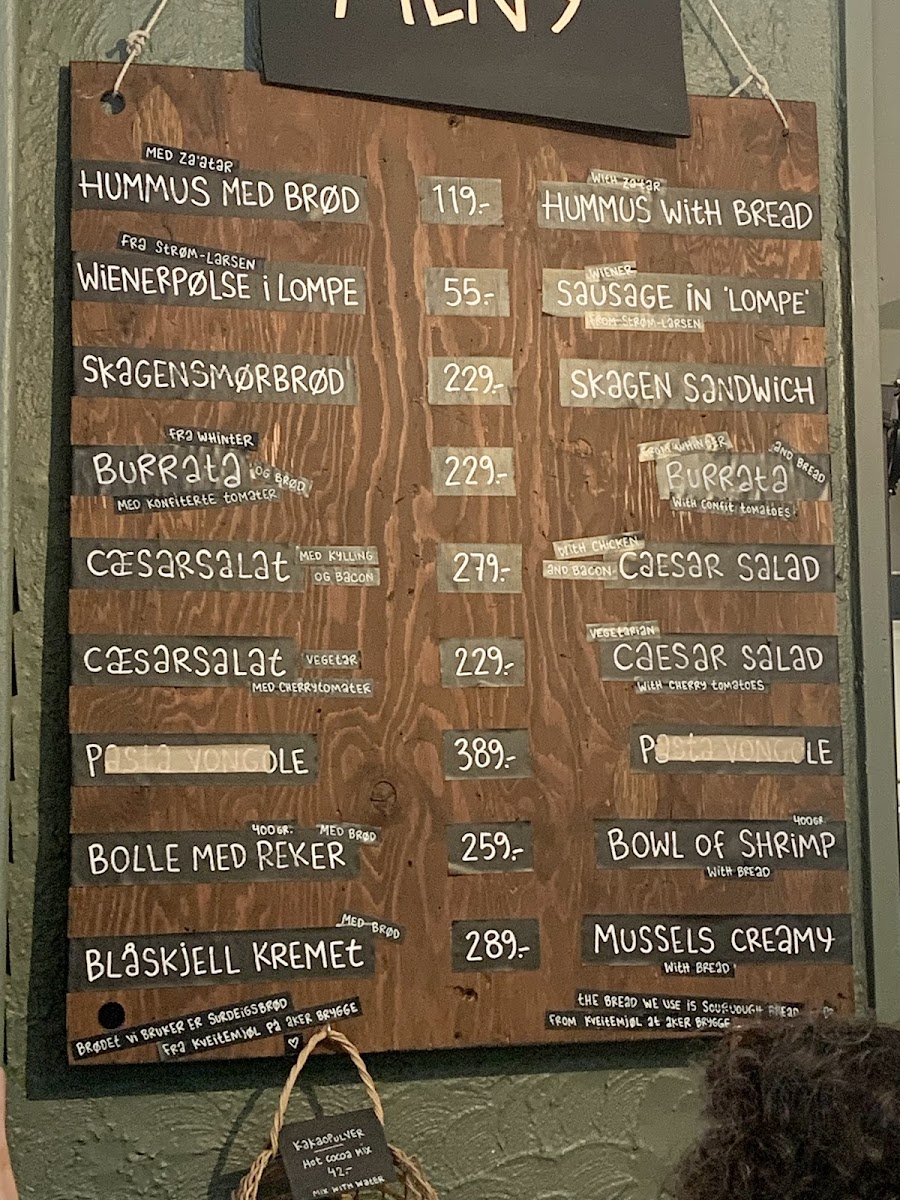 MENY
MED ZA'ATAR
HUMMUS MED BRØD 119.- WITH ZATAR
HUMMUS WITH BREAD
FRA STRØM-LARSEN
WIENERPØLSE I LOMPE 55.- WIENER
SAUSAGE IN 'LOMPE'
FROM STRØM-LARSEN
SKAGENSMØRBRØD 229.- SKAGEN SANDWICH
FRA WHINTER
BURRATA OG BRØD
MED KONFITERTE TOMATER
229.-
FROM WHINTER
BURRATA AND BREAD
WITH CONFIT TOMATOES
CÆSARSALAT MED KYLLING
OG BACON
279.-
WITH CHICKEN
AND BACON CAESAR SALAD
CÆSARSALAT VEGETAR
MED CHERRYTOMATER
229.-
VEGETARIAN
CAESAR SALAD
WITH CHERRY TOMATOES
PASTA VONGOLE 389.- PASTA VONGOLE
400GR. MED BRØD
BOLLE MED REKER 259.- 400GR.
BOWL OF SHRIMP
WITH BREAD
MED BRØD
BLÅSKJELL KREMET 289.- MUSSELS CREAMY
WITH BREAD
BRØDET VI BRUKER ER SURDEIGSBRØD
FRA KVEITEMJØL PÅ AKER BRYGGE
THE BREAD WE USE IS SOURDOUGH BREAD
FROM KVEITEMJØL AT AKER BRYGGE
KAKAOPULVER
HOT COCOA MIX
42.-
MIX WITH WATER